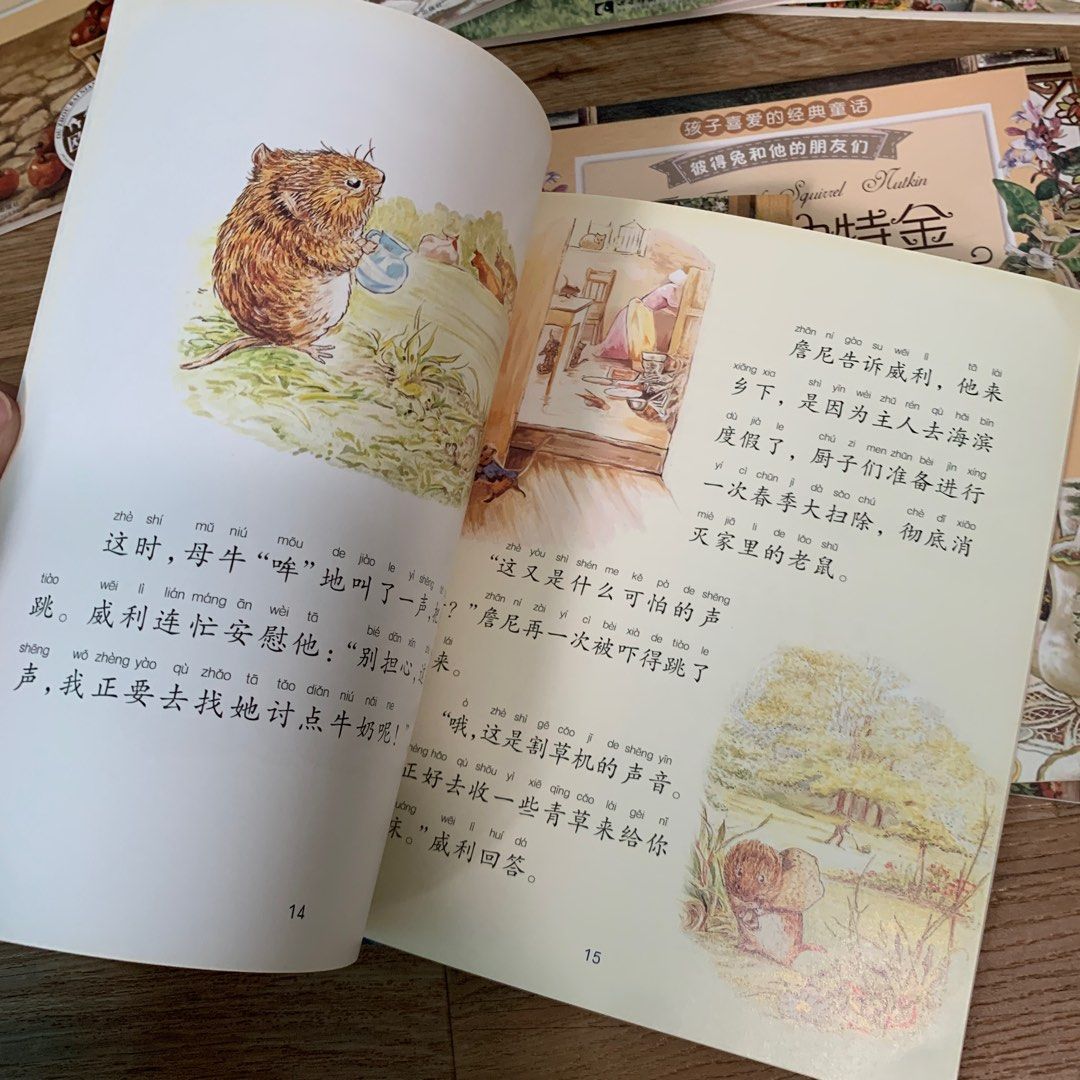 zhè shí mǔ niú mōu de jiào le yì shēng
这时，母牛“哞”地叫了一声，
tiào wēi lì lián máng ān wèi tā bié dān xīn
跳。威利连忙安慰他：“别担心，
shēng wǒ zhèng yào qù zhǎo tā tǎo diǎn niú nǎi ne
声，我正要去找她讨点牛奶呢！”
14
zhān ní gào su wēi lì tā lái
詹尼告诉威利，他来
xiāng xia shì yīn wèi zhǔ rén qù hǎi bīn
乡下，是因为主人去海滨
dù jià le chú zi men zhǔn bèi jìn xíng
度假了，厨子们准备进行
yí cì chūn jì dà sǎo chú chè dǐ xiāo
一次春季大扫除，彻底消
miè jiā li de lǎo shǔ
灭家里的老鼠。
zhè yòu shì shén me kě pà de shēng
“这又是什么可怕的声
zhān ní zài yí cì bèi xià de tiào le
？”詹尼再一次被吓得跳了
lái
来。
ò zhè shì gē cǎo jī de shēng yīn
“哦，这是割草机的声音。
hǎo qù shōu yì xiē qīng cǎo lái gěi nǐ
正好去收一些青草来给你
wēi lì huí dá
床。”威利回答。
15
孩子喜爱的经典童话
彼得兔和他的朋友们
Squirrel Nutkin
特金